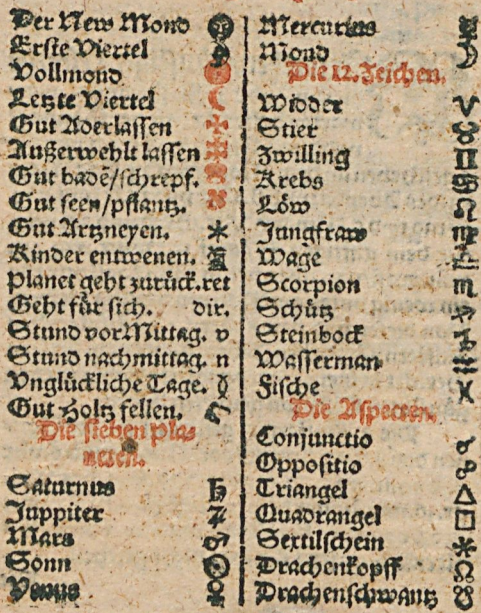 Der New Mond
Erste Viertel
Vollmond
Letzte Viertel
Gut Aderlassen
Außerwehlt lassen
Gut badẽ/schrepf.
Gut seen/pflantz.
Gut Artzneyen.
Kinder entwenen.
Planet geht zurück. ret
Geht für sich. dir.
Stund vor Mittag. v
Stund nachmittag. n
Vnglückliche Tage.
Gut Holtz fellen.
Die sieben Pla-
neten.
Saturnus ♄
Juppiter ♃
Mars ♂
Sonn ☉
Venus ♀
Mercurius ☿
Mond ☽
Die 12. Zeichen.
Widder ♈
Stier ♉
Zwilling ♊
Krebs ♋
Löw ♌
Jungfraw ♍
Wage ♎
Scorpion ♏
Schütz ♐
Steinbock ♑
Wasserman ♒
Fische ♓
Die Aspecten.
Conjunctio ☌
Oppositio ☍
Triangel △
Quadrangel □
Sextilschein ⚹
Drachenkopff ☊
Drachenschwantz ☋